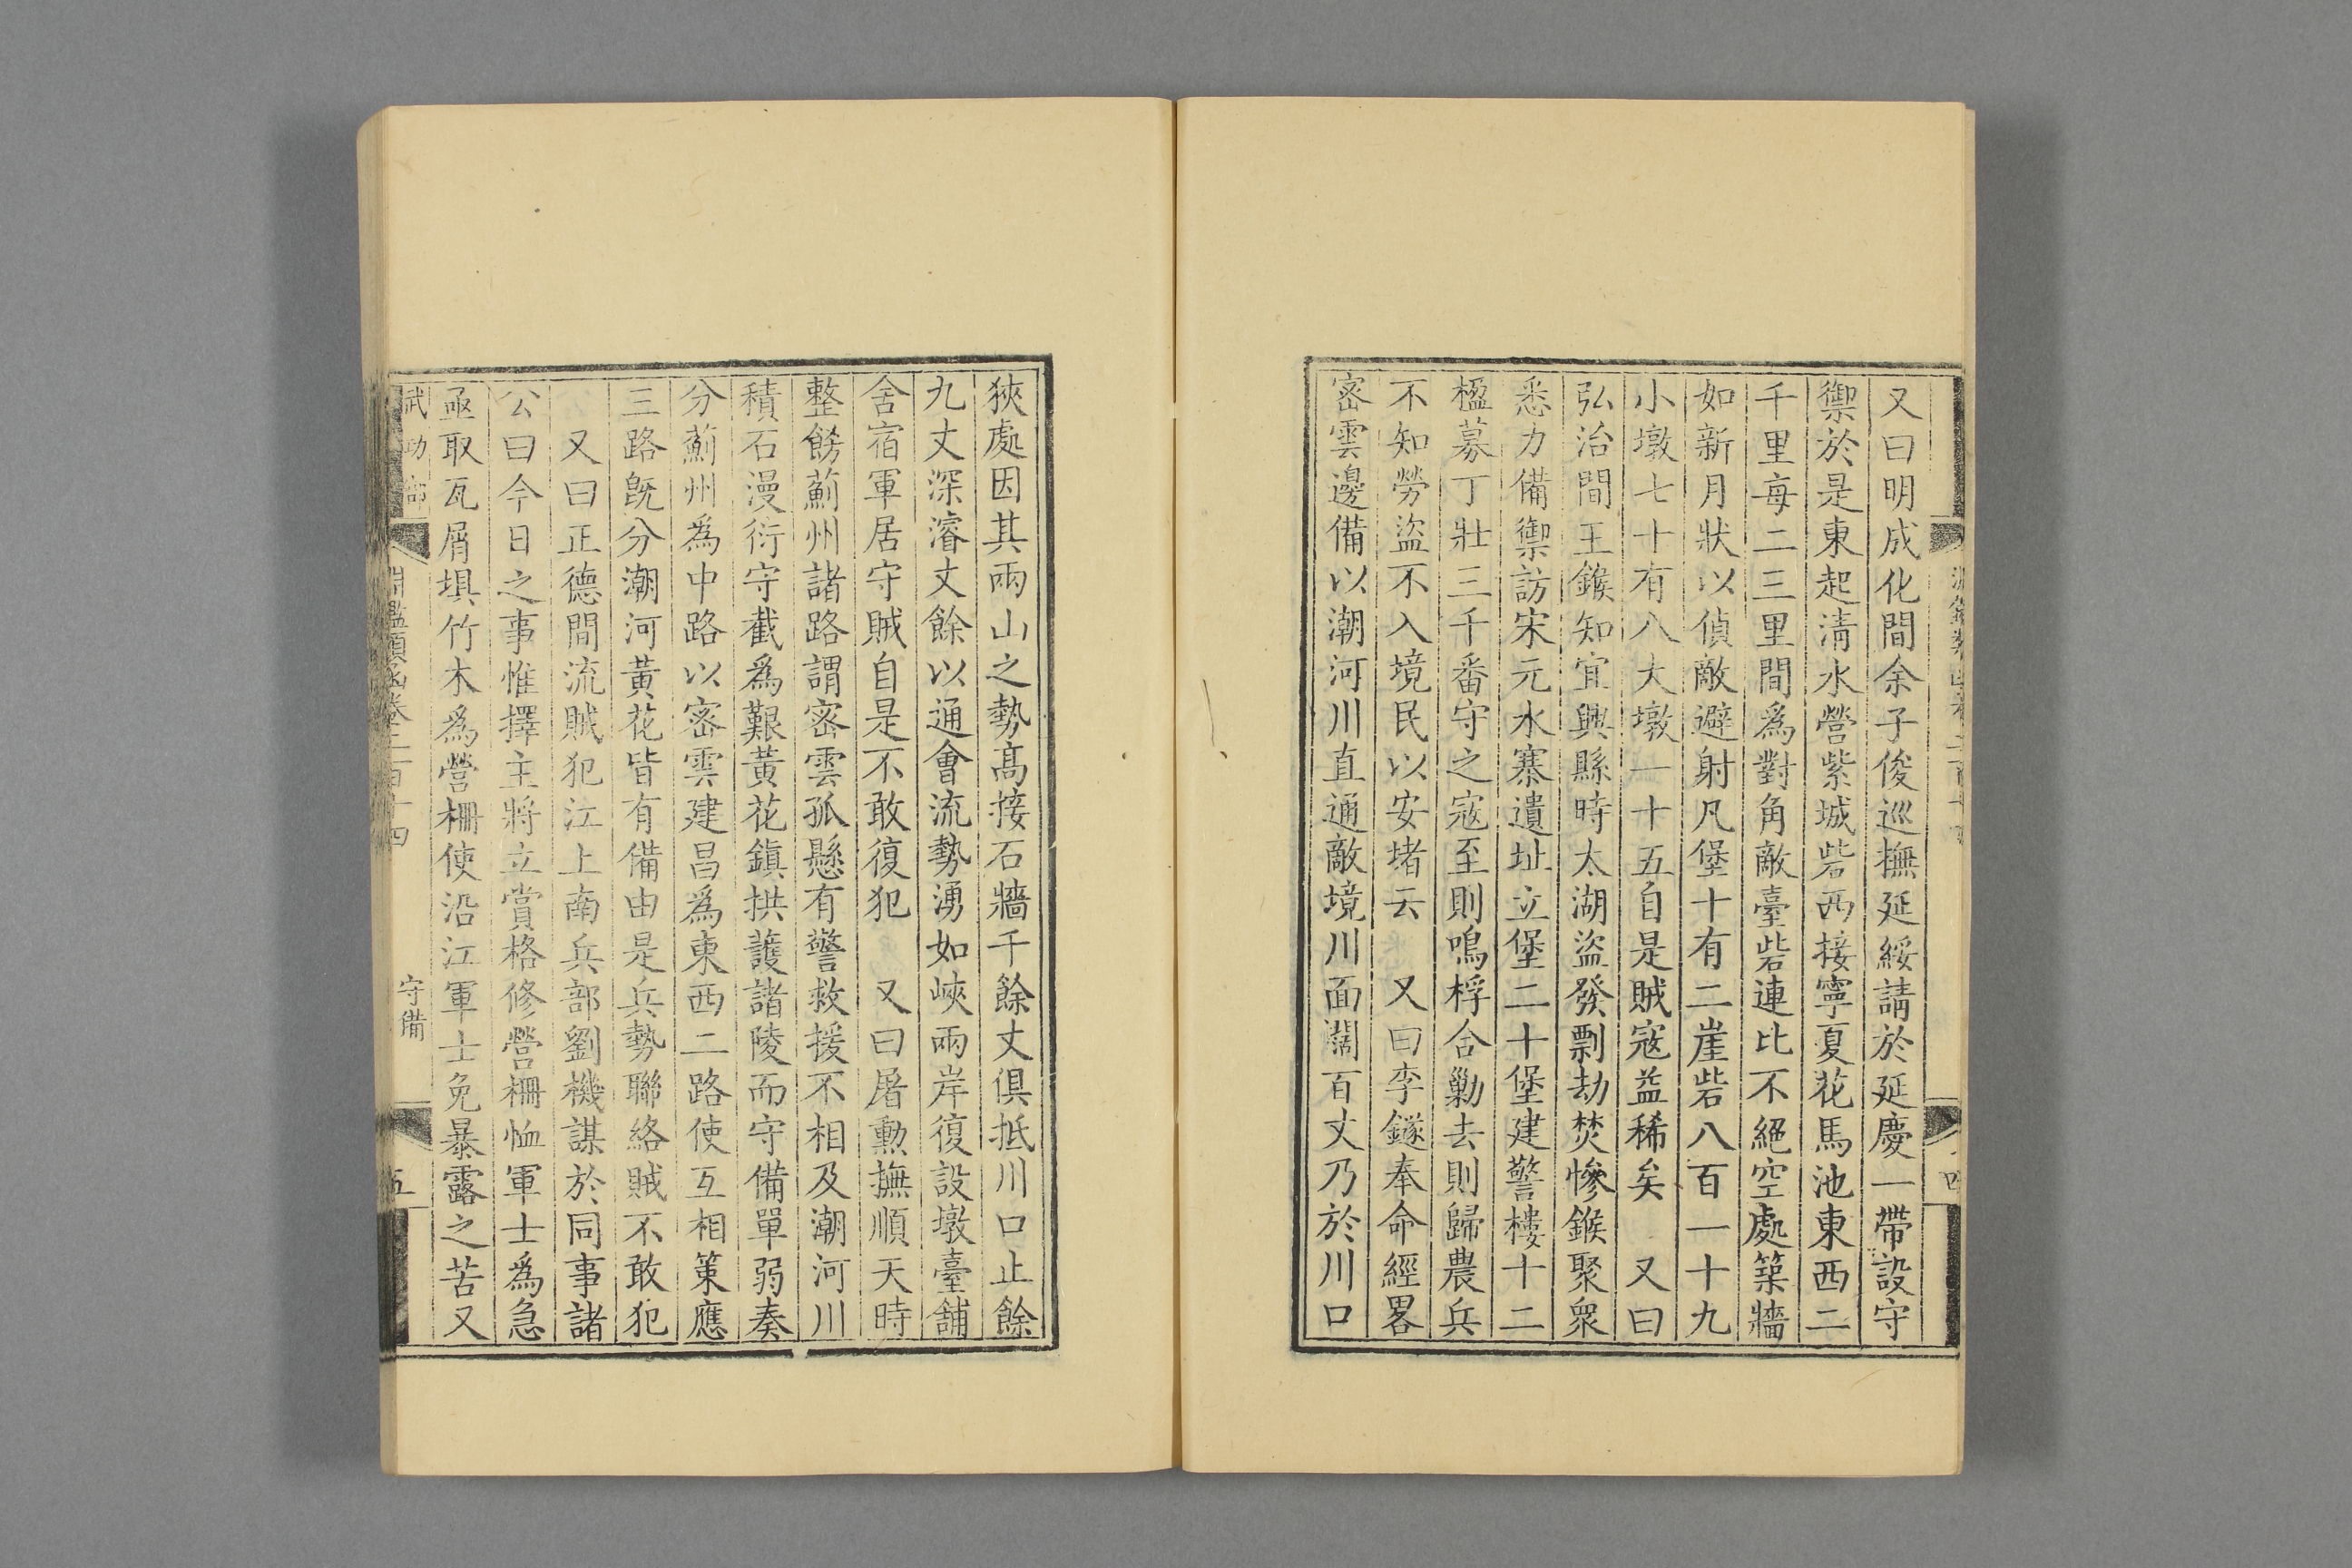 又曰明成化間余子俊巡撫延綏請於延慶一帶設守
禦於是東起清水營紫城砦西接寧夏花馬池東西二
千里每二三里間爲對角敵臺砦連比不絕空處築牆
如新月狀以偵敵避射凡堡十有二崖砦八百一十九
小墩七十有八大墩一十五自是賊寇益稀矣　又曰
弘治間王鍭知宜興縣時太湖盜發剽劫焚慘鍭聚衆
悉力備禦訪宋元水寨遺址立堡二十堡建警樓十二
楹募丁壯三千番守之寇至則鳴桴合勦去則歸農兵
不知勞盜不入境民以安堵云　又曰李鐩奉命經畧
密雲邊備以潮河川直通敵境川面闊百丈乃於川口
狹處因其兩山之勢高接石牆千餘丈俱抵川口止餘
九丈深濬丈餘以通會流勢湧如峽兩岸復設墩臺舖
舍宿軍居守賊自是不敢復犯　又曰屠勳撫順天時
整餝薊州諸路謂密雲孤懸有警救援不相及潮河川
積石漫衍守截爲艱黃花鎮拱護諸陵而守備單弱奏
分薊州爲中路以密雲建昌爲東西二路使互相策應
三路旣分潮河黃花皆有備由是兵勢聯絡賊不敢犯
又曰正德間流賊犯江上南兵部劉機謀於同事諸
公曰今日之事惟擇主將立賞格修營柵恤軍士爲急
亟取瓦屑埧竹木爲營柵使沿江軍士免暴露之苦又
武功部　淵鑑類函卷二百十四　守備　五